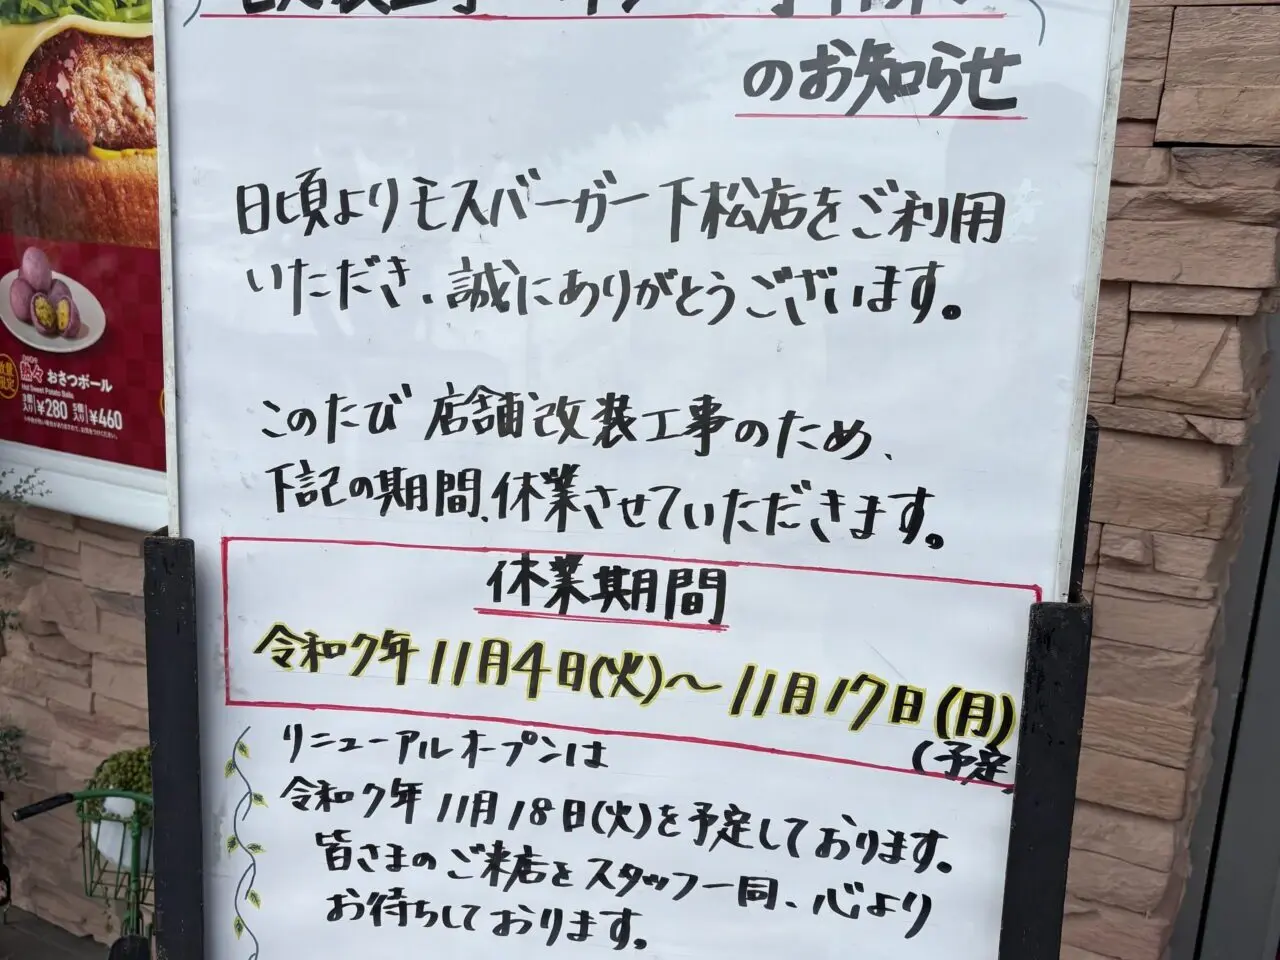 のお知らせ
日頃よりモスバーガー下松店をご利用
いただき、誠にありがとうございます。
このたび店舗改装工事のため、
下記の期間、休業させていただきます。
休業期間
令和7年11月4日(火)～11月17日(月)
(予定
リニューアルオープンは
令和7年11月18日(火)を予定しております。
皆さまのご来店をスタッフ一同、心より
お待ちしております。
数量
限定
熱々 おさつボール
Hot Sweet Potato Balls
3個入り ¥280 5個入り ¥460